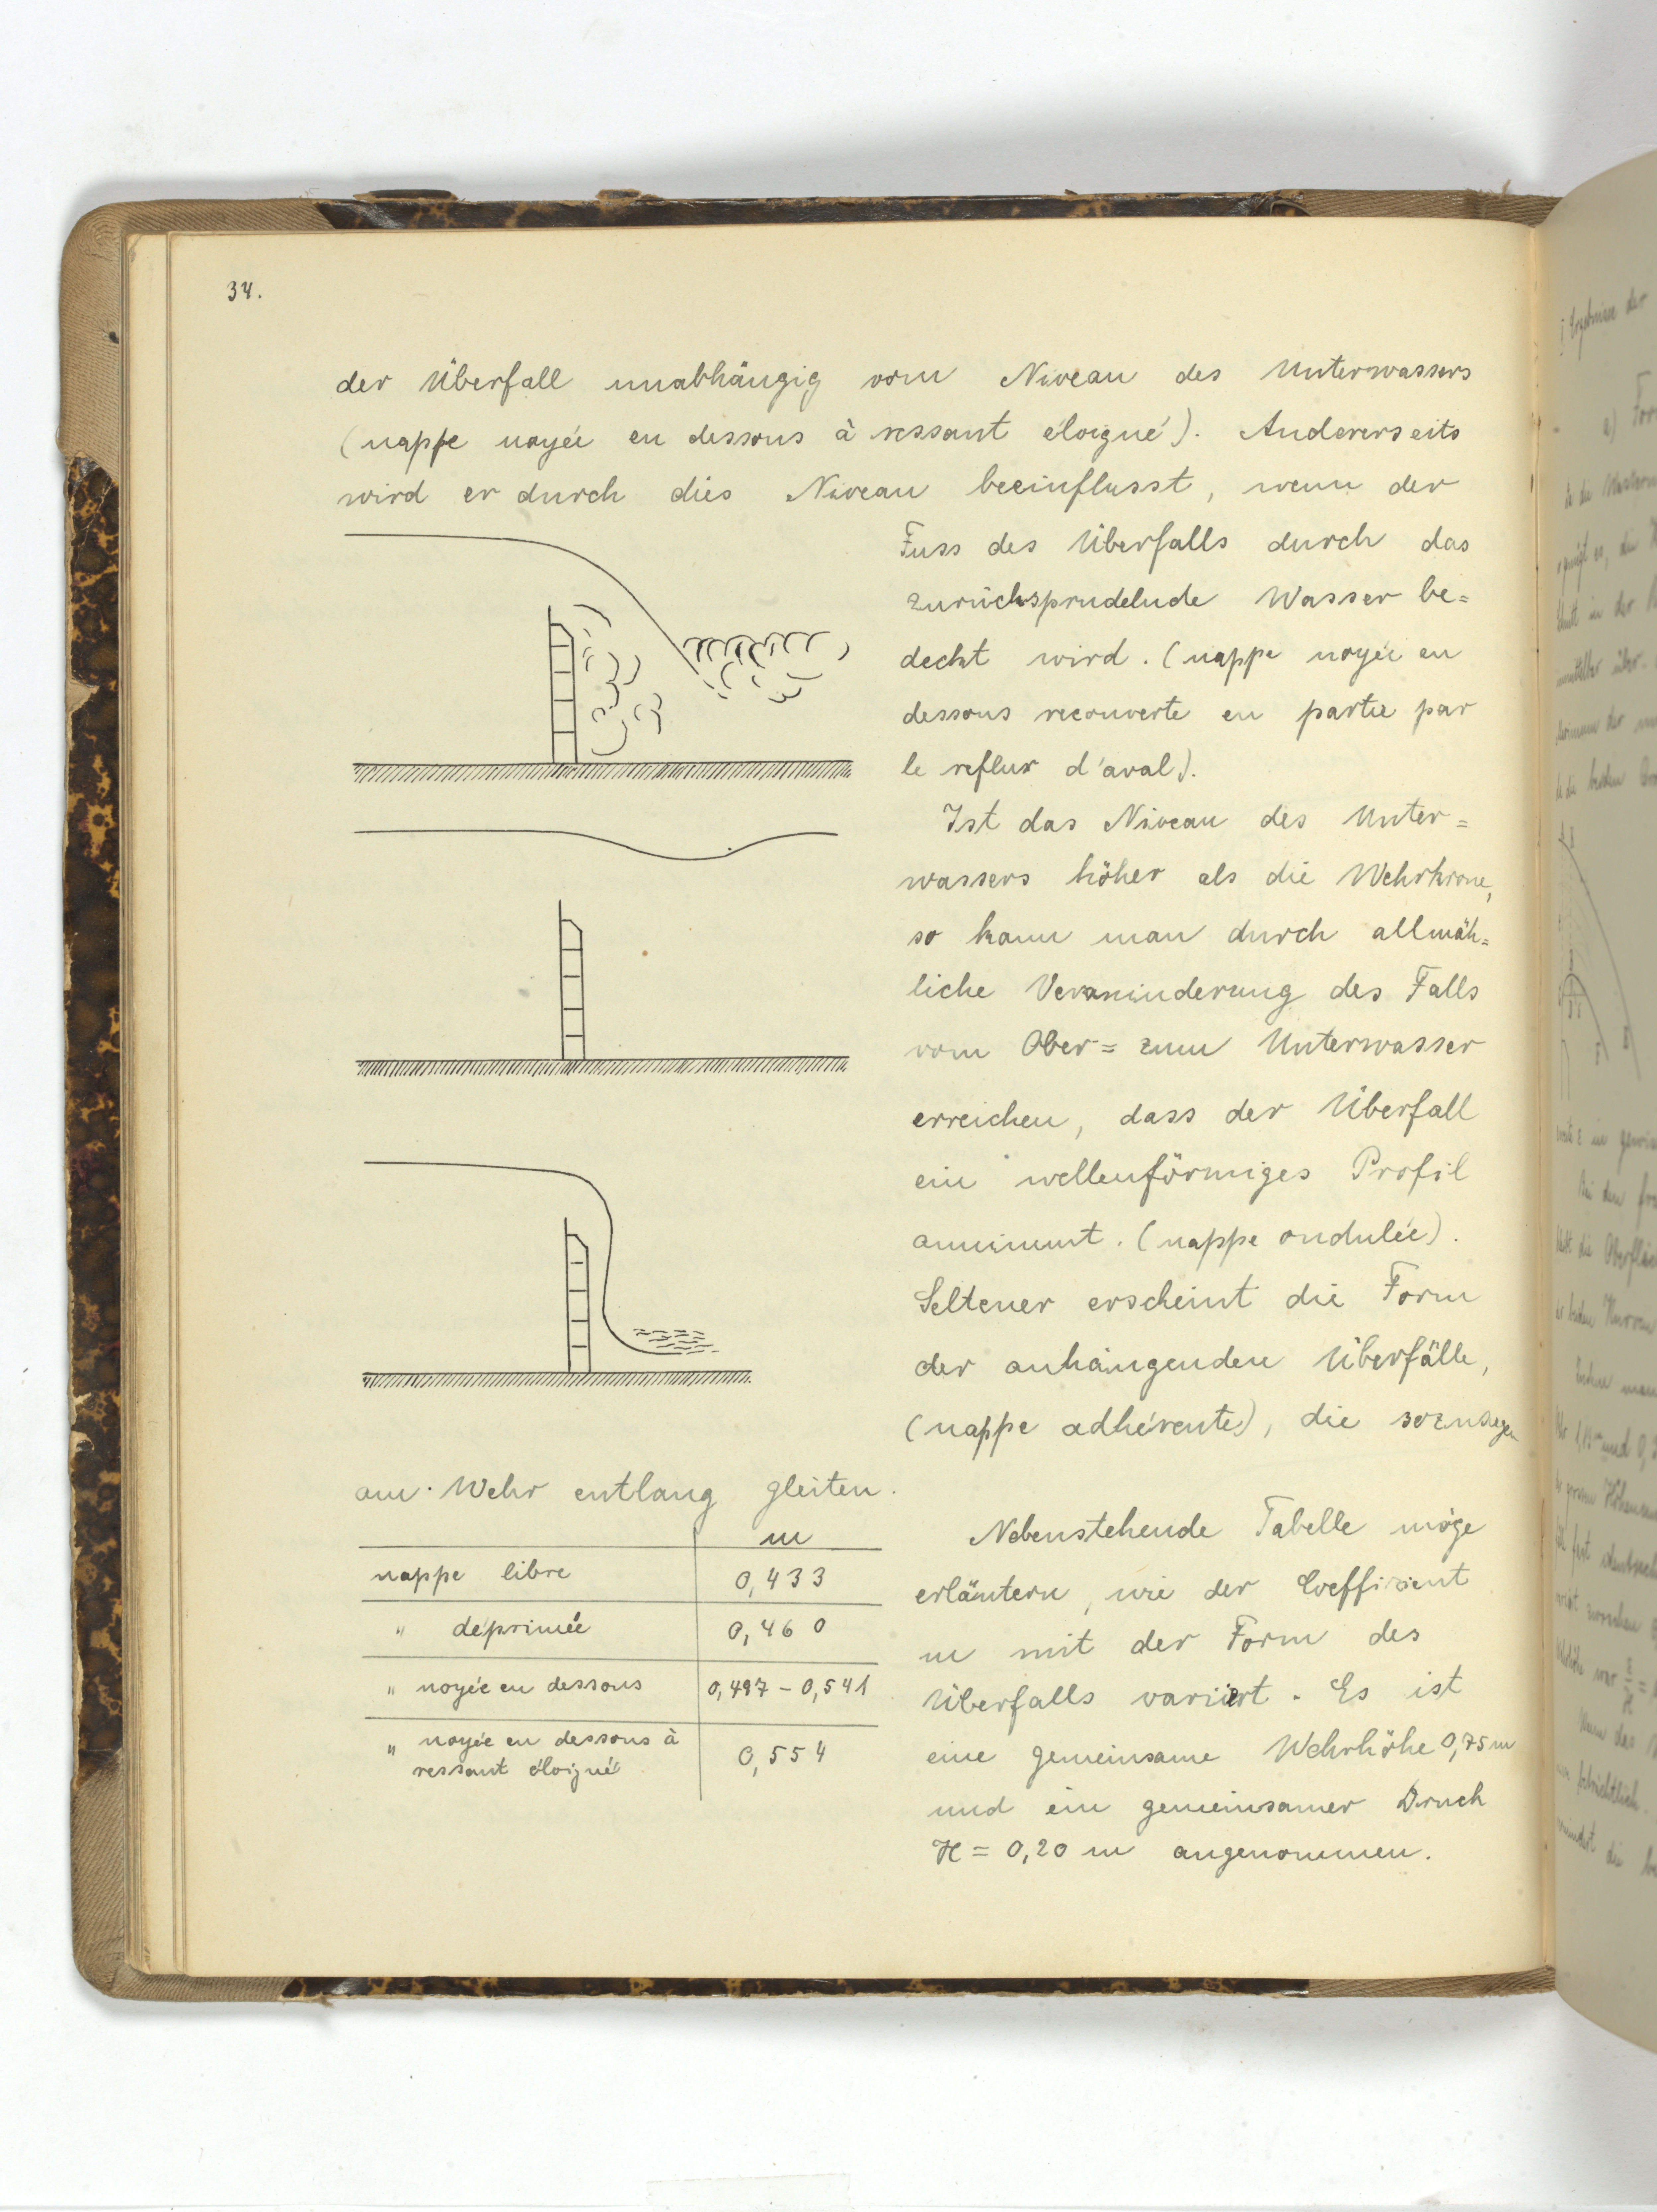 34.
der Überfall unabhängig vom Niveau des Unterwassers
(nappe noyée en dessous à ressaut éloigné). Andererseits
wird er durch dies Niveau beeinflusst, wenn der
Fuss des Überfalls durch das
zurücksprudelnde Wasser be=
deckt wird. (nappe noyée en
dessous recouverte en partie par
le reflux d'aval).
Ist das Niveau des Unter=
wassers höher als die Wehrkrone,
so kann man durch allmäh=
liche Verminderung des Falls
vom Ober= zum Unterwasser
erreichen, dass der Überfall
ein wellenförmiges Profil
annimmt. (nappe ondulée).
Seltener erscheint die Form
der anhängenden Überfälle,
(nappe adhérente), die sozusagen
am Wehr entlang gleiten.
m
nappe libre 0,433
" déprimée 0,460
" noyée en dessous 0,497 – 0,541
" noyée en dessous à
ressaut éloigné 0,554
Nebenstehende Tabelle möge
erläutern, wie der Coeffizient
m mit der Form des
Überfalls variiert. Es ist
eine gemeinsame Wehrhöhe 0,75 m
und ein gemeinsamer Druck
H = 0,20 m angenommen.